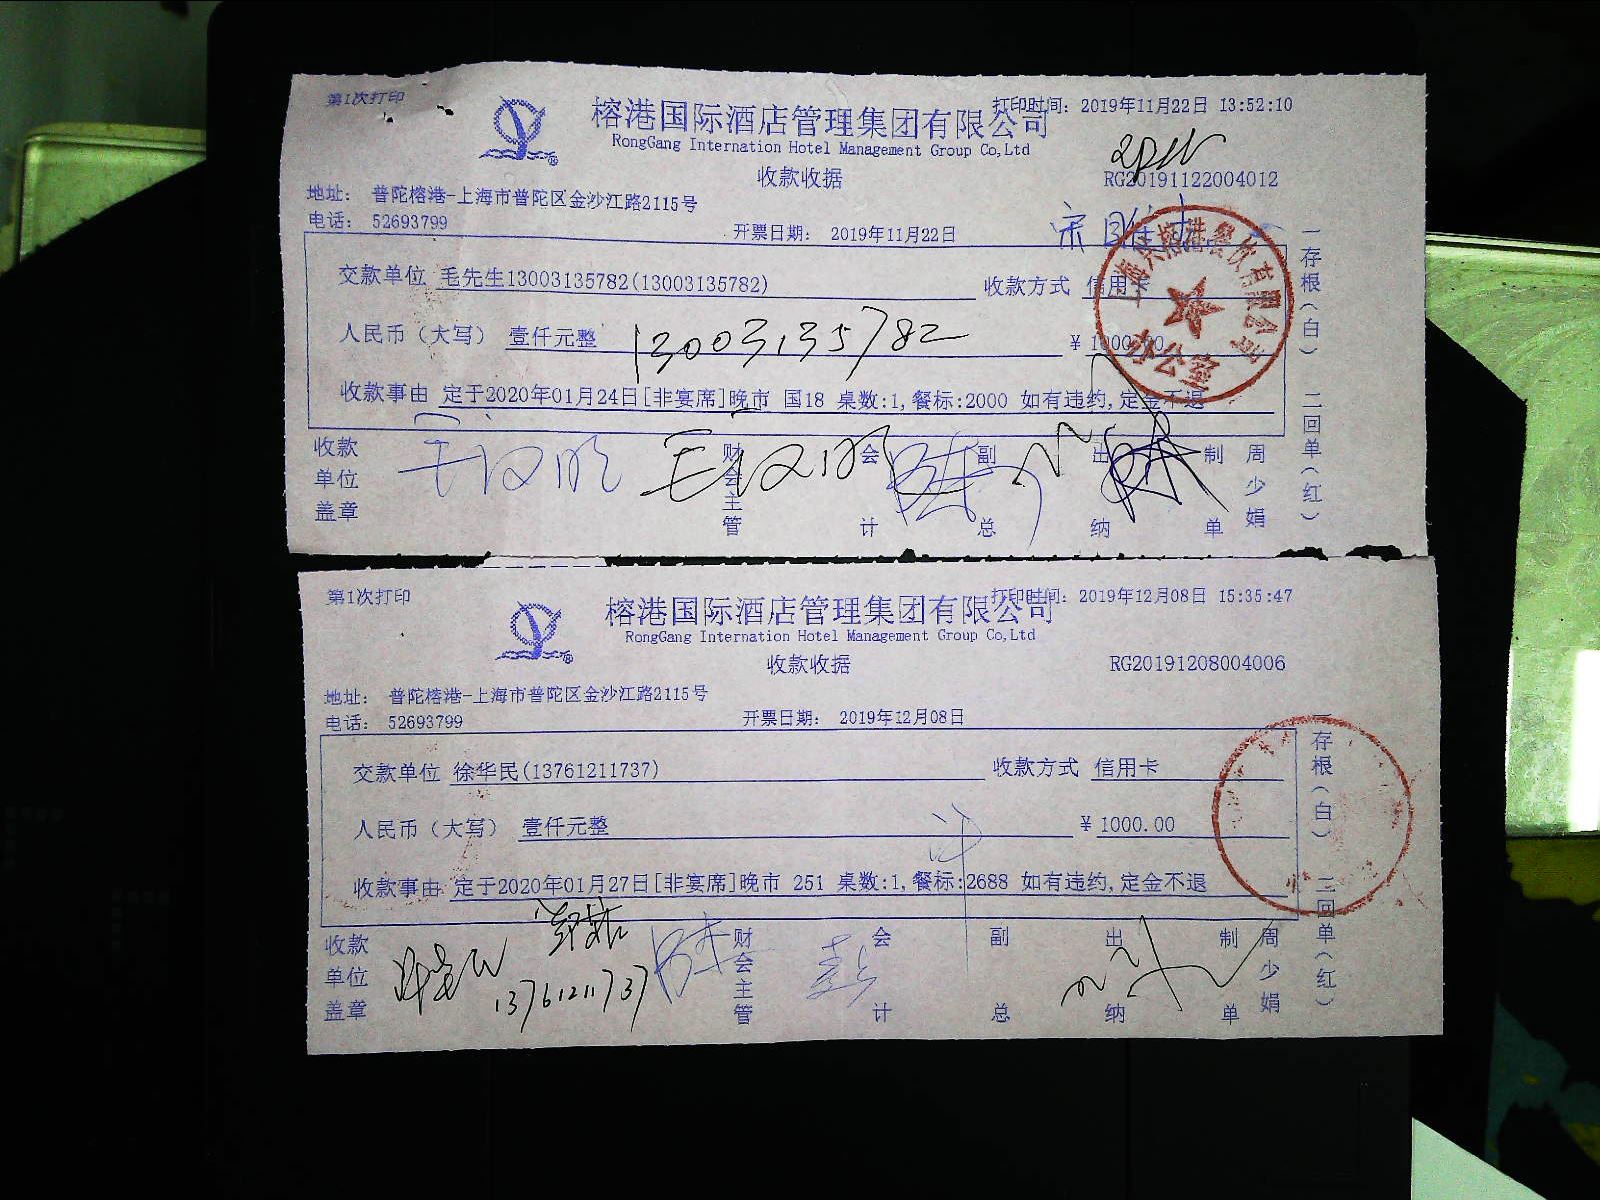 第1次打印
打印时间: 2019年11月22日 13:52:10
榕港国际酒店管理集团有限公司
RongGang Internation Hotel Management Group Co,Ltd
收款收据
RG20191122004012
地址: 普陀榕港-上海市普陀区金沙江路2115号
电话: 52693799
开票日期: 2019年11月22日
交款单位 毛先生13003135782(13003135782) 收款方式 信用卡
人民币（大写） 壹仟元整 13003135782 ¥ 1000.00
收款事由 定于2020年01月24日[非宴席]晚市 国18 桌数:1,餐标:2000 如有违约,定金不退
收款单位盖章 财会主管 会计 副总 出纳 制单 周少娟
一存根(白) 二回单(红)
餐饮有限公司
办公室
第1次打印
打印时间: 2019年12月08日 15:35:47
榕港国际酒店管理集团有限公司
RongGang Internation Hotel Management Group Co,Ltd
收款收据
RG20191208004006
地址: 普陀榕港-上海市普陀区金沙江路2115号
电话: 52693799
开票日期: 2019年12月08日
交款单位 徐华民(13761211737) 收款方式 信用卡
人民币（大写） 壹仟元整 ¥ 1000.00
收款事由 定于2020年01月27日[非宴席]晚市 251 桌数:1,餐标:2688 如有违约,定金不退
收款单位盖章 财会主管 会计 副总 出纳 制单 周少娟
13761211737
一存根(白) 二回单(红)